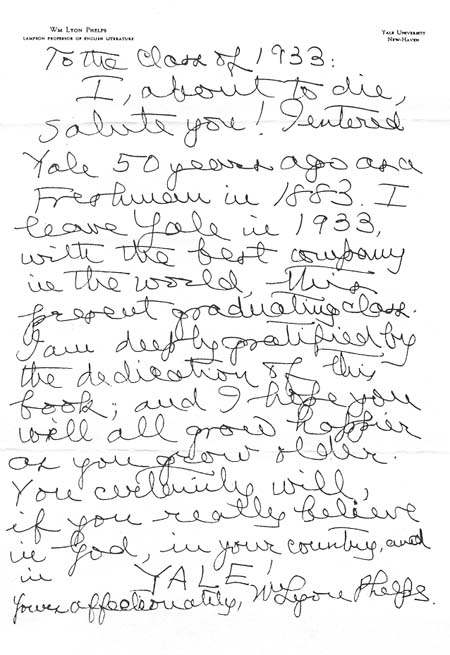 Wm Lyon Phelps
Lampson Professor of English Literature
Yale University
New Haven
To the Class of 1933:
I, about to die,
salute you! I entered
Yale 50 years ago as a
Freshman in 1883. I
leave Yale in 1933,
with the best company
in the world, this
present graduating class.
I am deeply gratified by
the dedication of this
book; and I hope you
will all grow happier
as you grow older.
You certainly will,
if you really believe
in God, in your country, and
in YALE!
Yours affectionately, Wm Lyon Phelps.